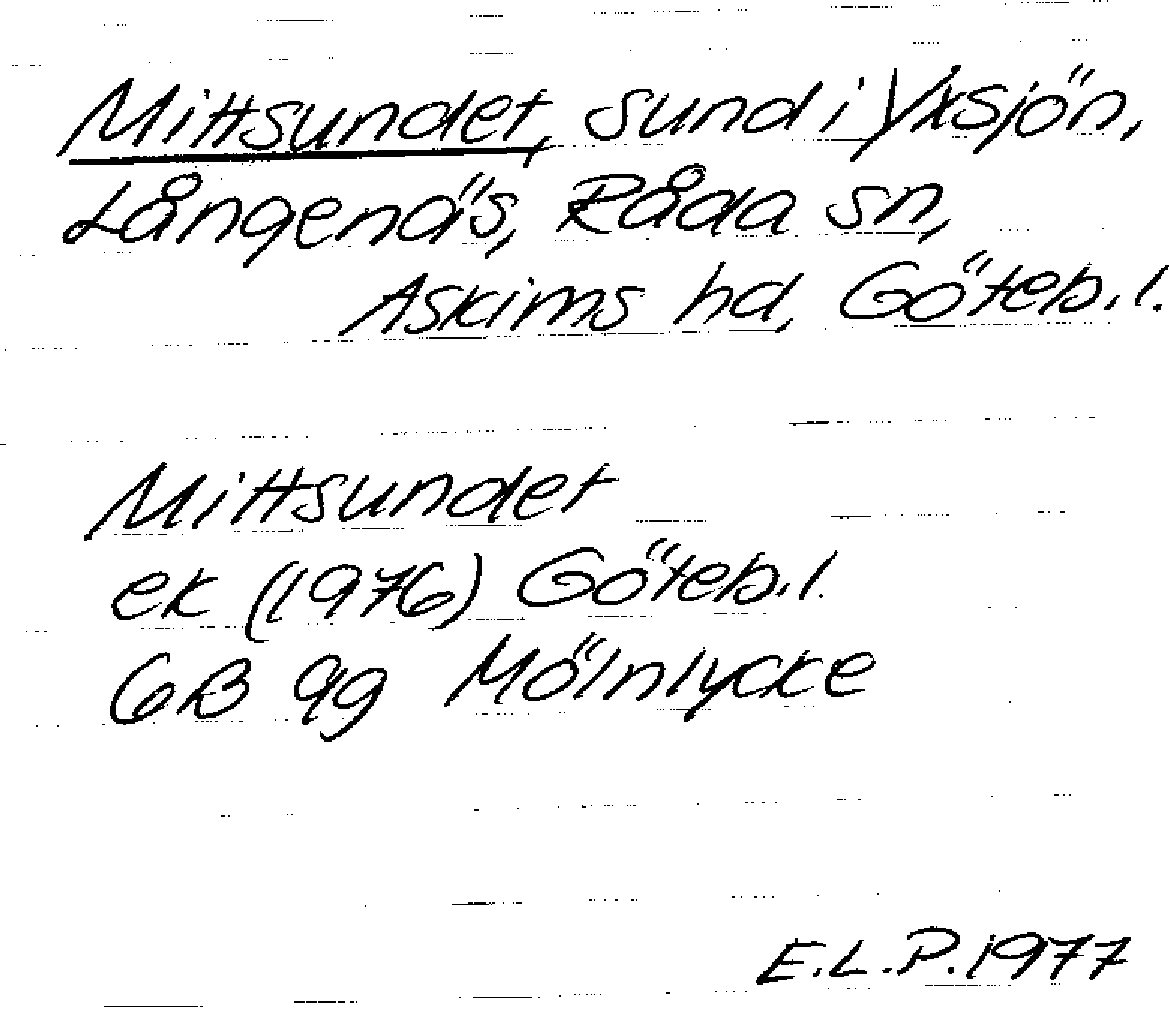 Mittsundet, sund i Yxsjön,
Långenäs, Råda sn,
Askims hd, Göteb.l.
Mittsundet
ek (1976) Göteb.l.
GB 9g Mölnlycke
E.L.P. 1977